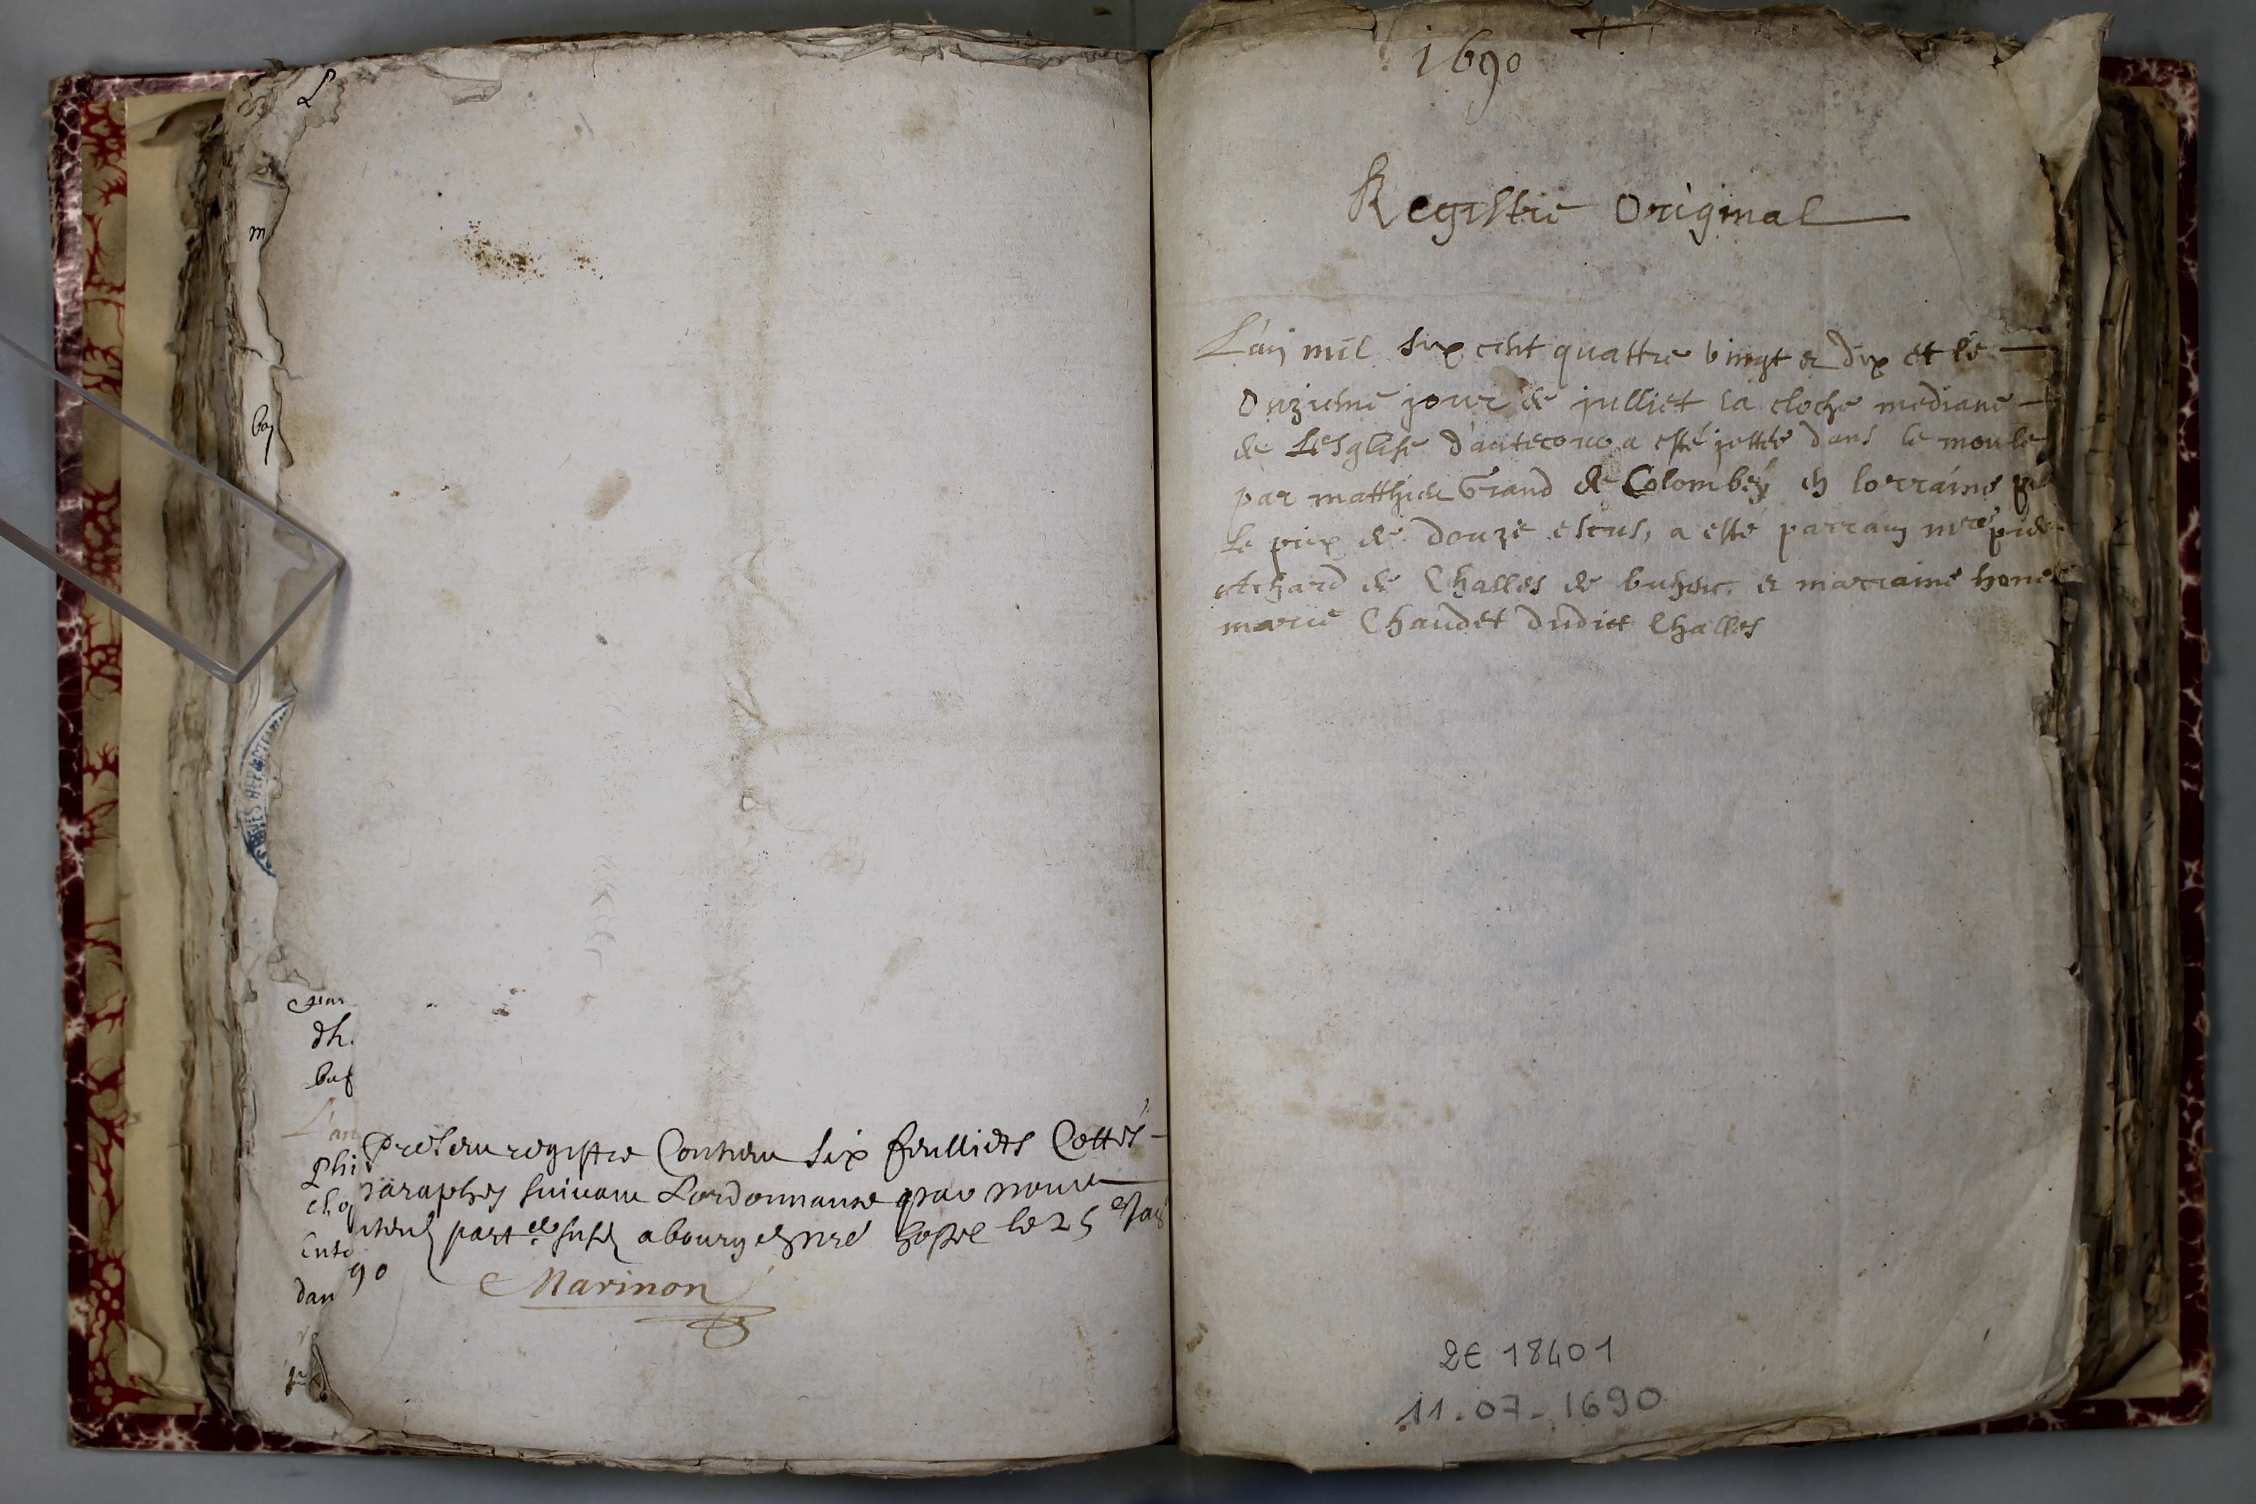 L
m
bap
dh.
bap
L'an
Phi
cho
Ente
dan
Present registre Contient six feulliets Cottés
paraphés suivant L'ordonnance par nous
part.er a bourg en nre hostel le 25e Jan
90
Marinon
1690
Registre Original
L'an mil six cent quattre vingt et dix et le
Onzieme jour de julliet la cloche mediane
de L'esglise d'autecour a esté jettée dans le moule
par matthieu Grand de Colombey en lorraine
le prix de douze escus, a esté parrain
de Challes de et marraine
marie Chaudet dudict Challes
2E 18401
11.07-1690